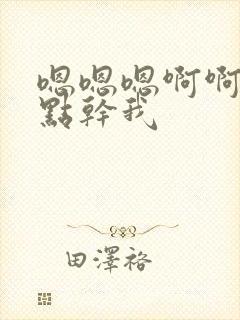 嗯嗯嗯啊啊
點幹我
田澤裕